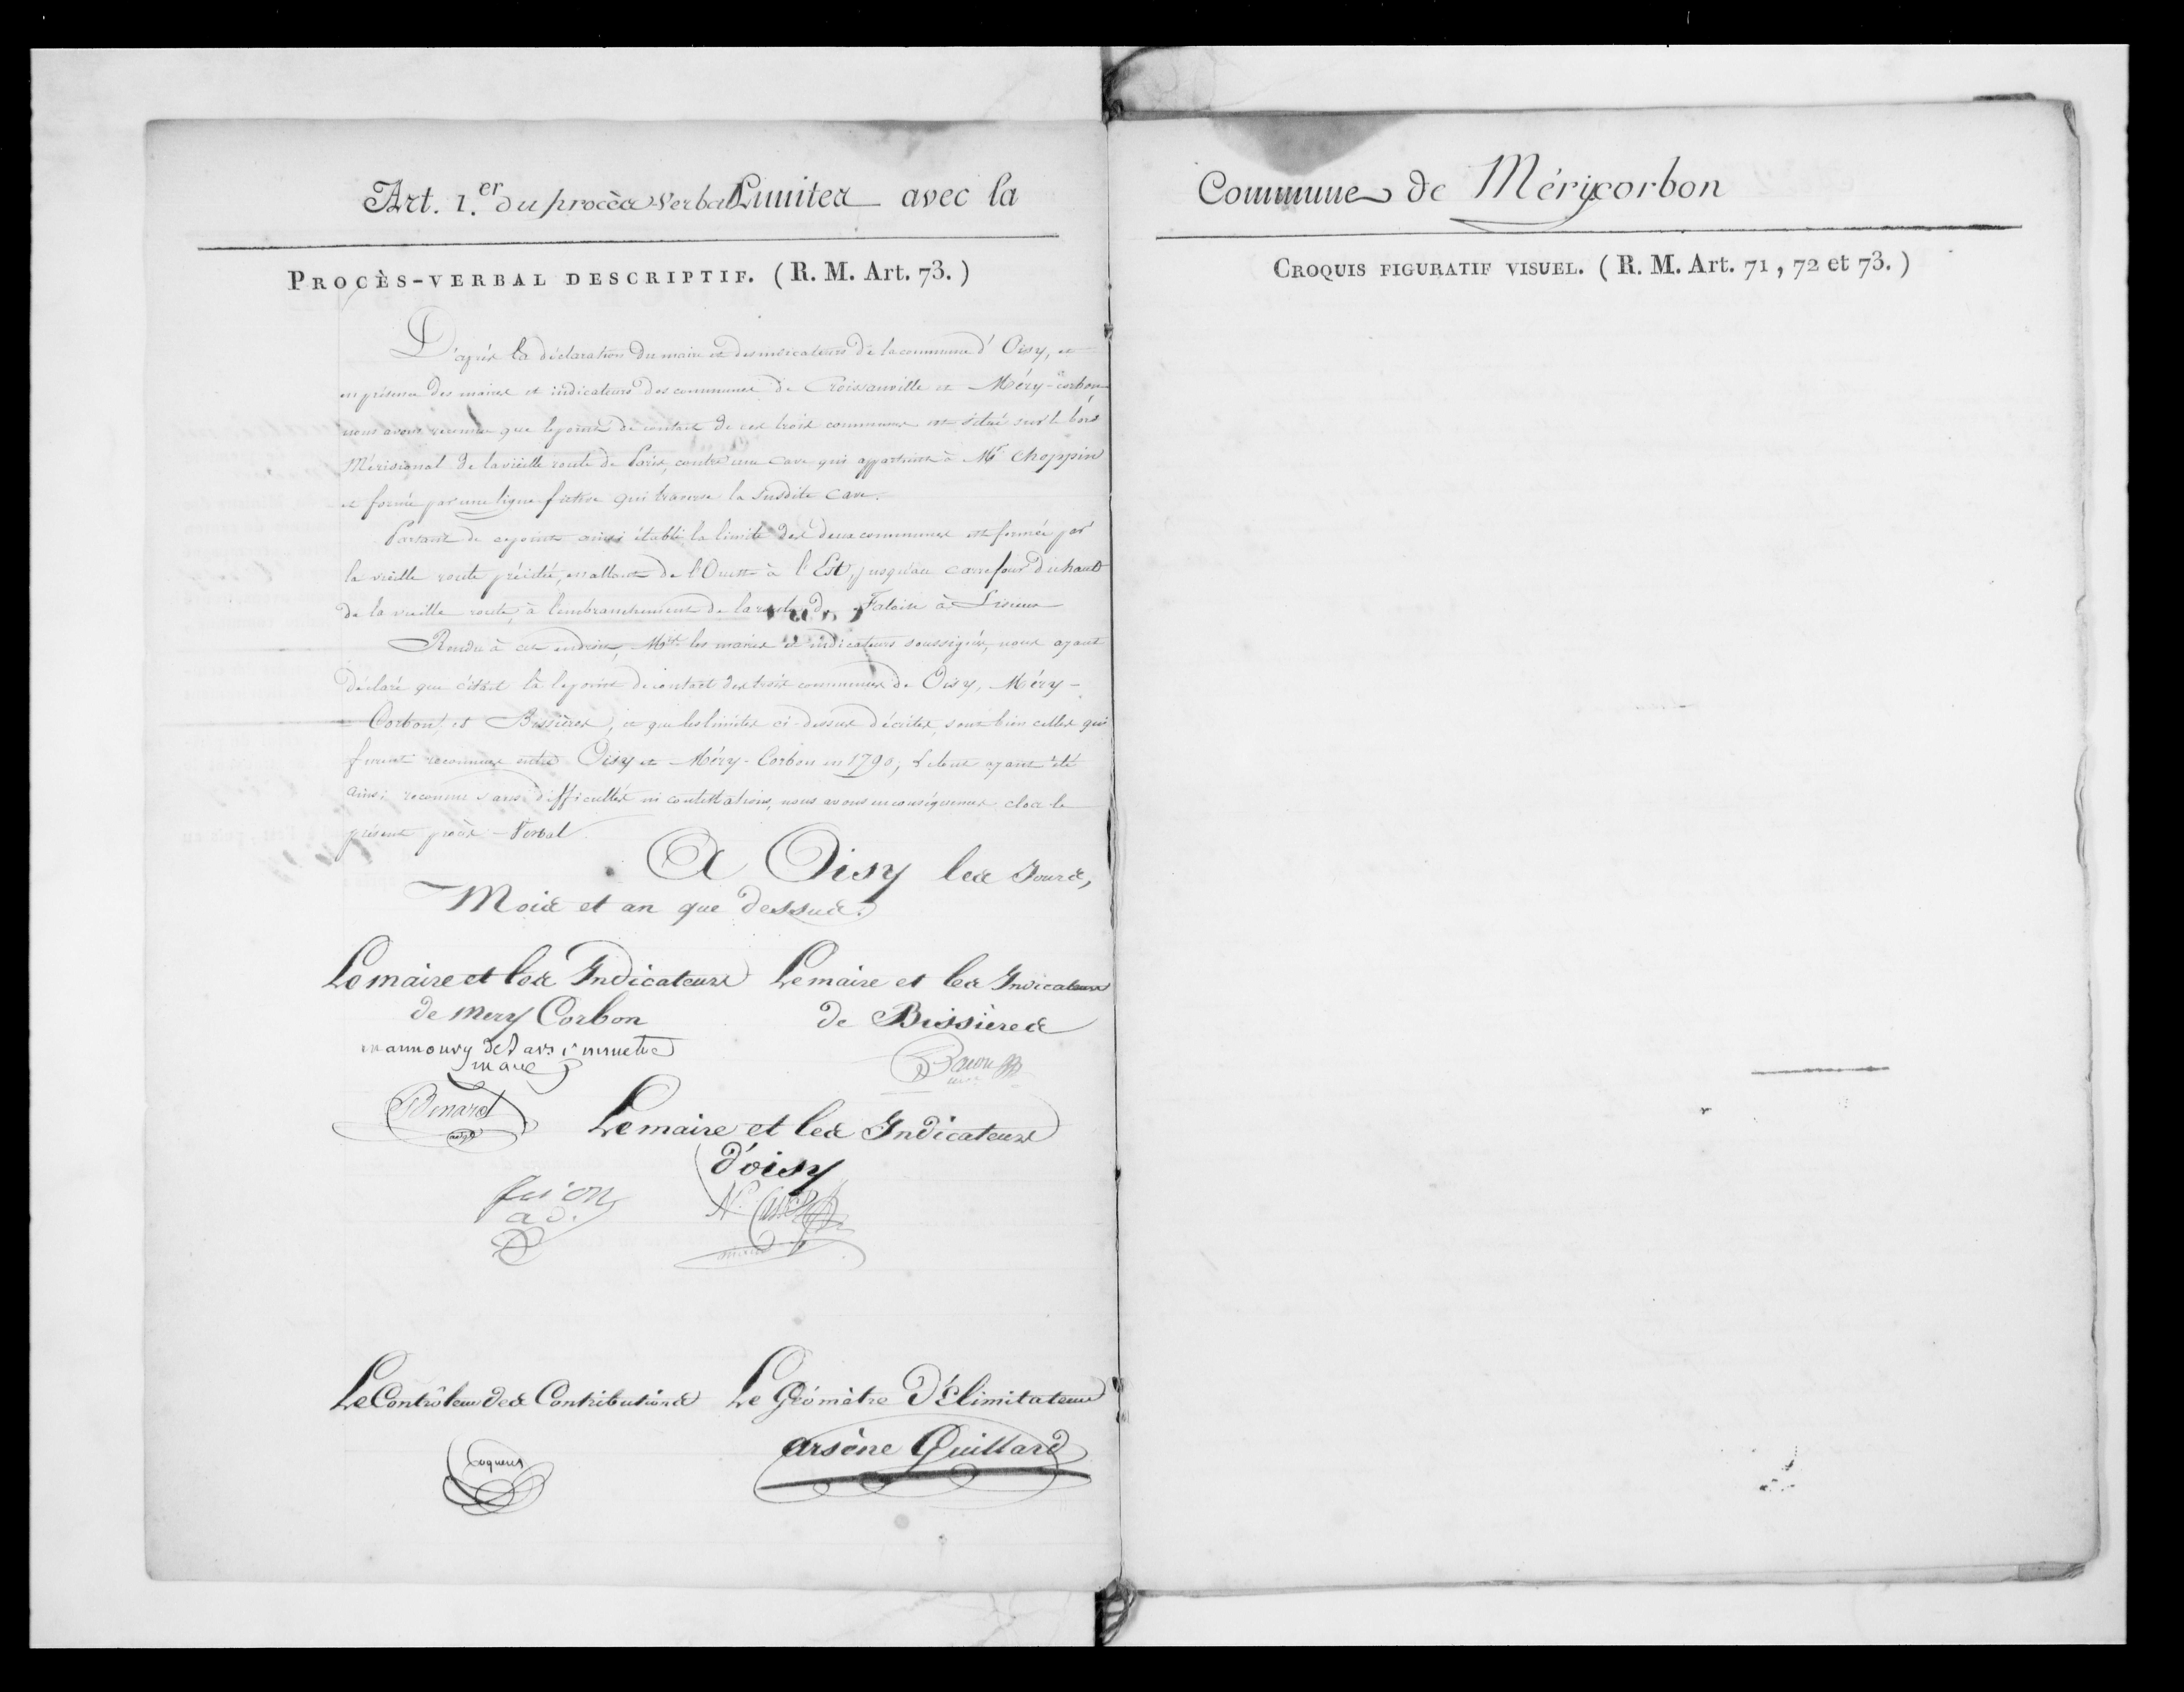 Art. 1.er du procès Verbal Limites avec la
PROCÈS-VERBAL DESCRIPTIF. (R. M. Art. 73.)
D'après la déclaration du maire et des indicateurs de la commune d'Oisy, et
en présence des maires et indicateurs des communes de Croissanville et Méry-corbon,
nous avons reconnu que le point de contact de ces trois communes est situé sur le bord
Méridional de la vieille route de Paris, contre une cave qui appartient à Mr Choppin
et formé par une ligne fictive qui traverse la susdite cave.
Partant de ce point ainsi établi la limite des deux communes est formée par
la vieille route précitée, en allant de l'Ouest à l'Est, jusqu'au carrefour du haut
de la vieille route, à l'embranchement de la route de Falaise à Lisieux
Rendu à cet endroit, Mrs les maires et indicateurs soussignés, nous ayant
déclaré que c'était là le point de contact des trois communes de Oisy, Méry-
Corbon et Bissières, et que les limites ci-dessus décrites, sont bien celles qui
furent reconnues entre Oisy et Méry-Corbon en 1790; Le tout ayant été
ainsi reconnu sans difficultés ni contestations, nous avons en conséquence clos le
présent procès-Verbal.
A Oisy les Jours,
Mois et an que dessus.
Le maire et les Indicateurs Le maire et les Indicateurs
de Mery Corbon de Bissières
mannoury
maire
Bacon
Benard
Le maire et les Indicateurs
d'oisy
ad.
N.
maire
Le Contrôleur des Contributions Le Géomètre Délimitateur
Arsène Guillard
Commune de Méry corbon
CROQUIS FIGURATIF VISUEL. (R. M. Art. 71, 72 et 73.)